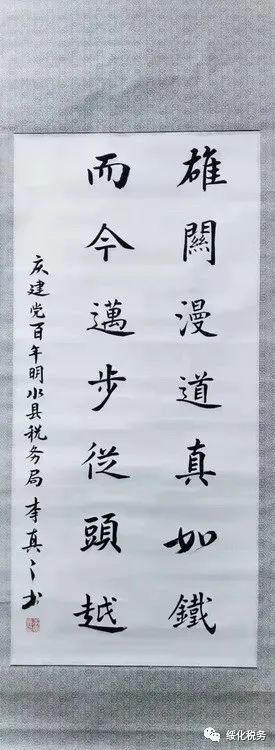 雄關漫道真如鐵
而今邁步從頭越
庆建党百年明水县税务局李真之书
绥化税务